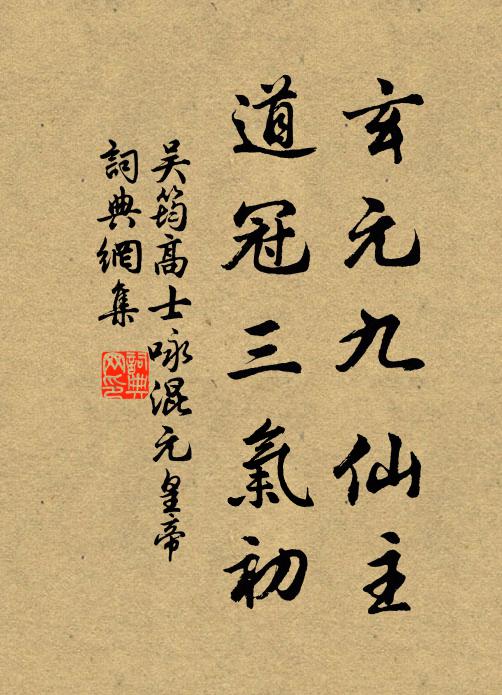 玄元九仙主
道冠三氣初
吳筠高士咏混元皇帝
詞典網集
詞典网印